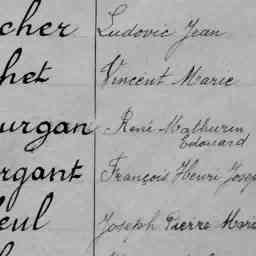 cher Ludovic Jean
het Vincent Marie
urgan René Mathurin
Edouard
rgant François Henri Josep
eul Joseph Pierre Marie